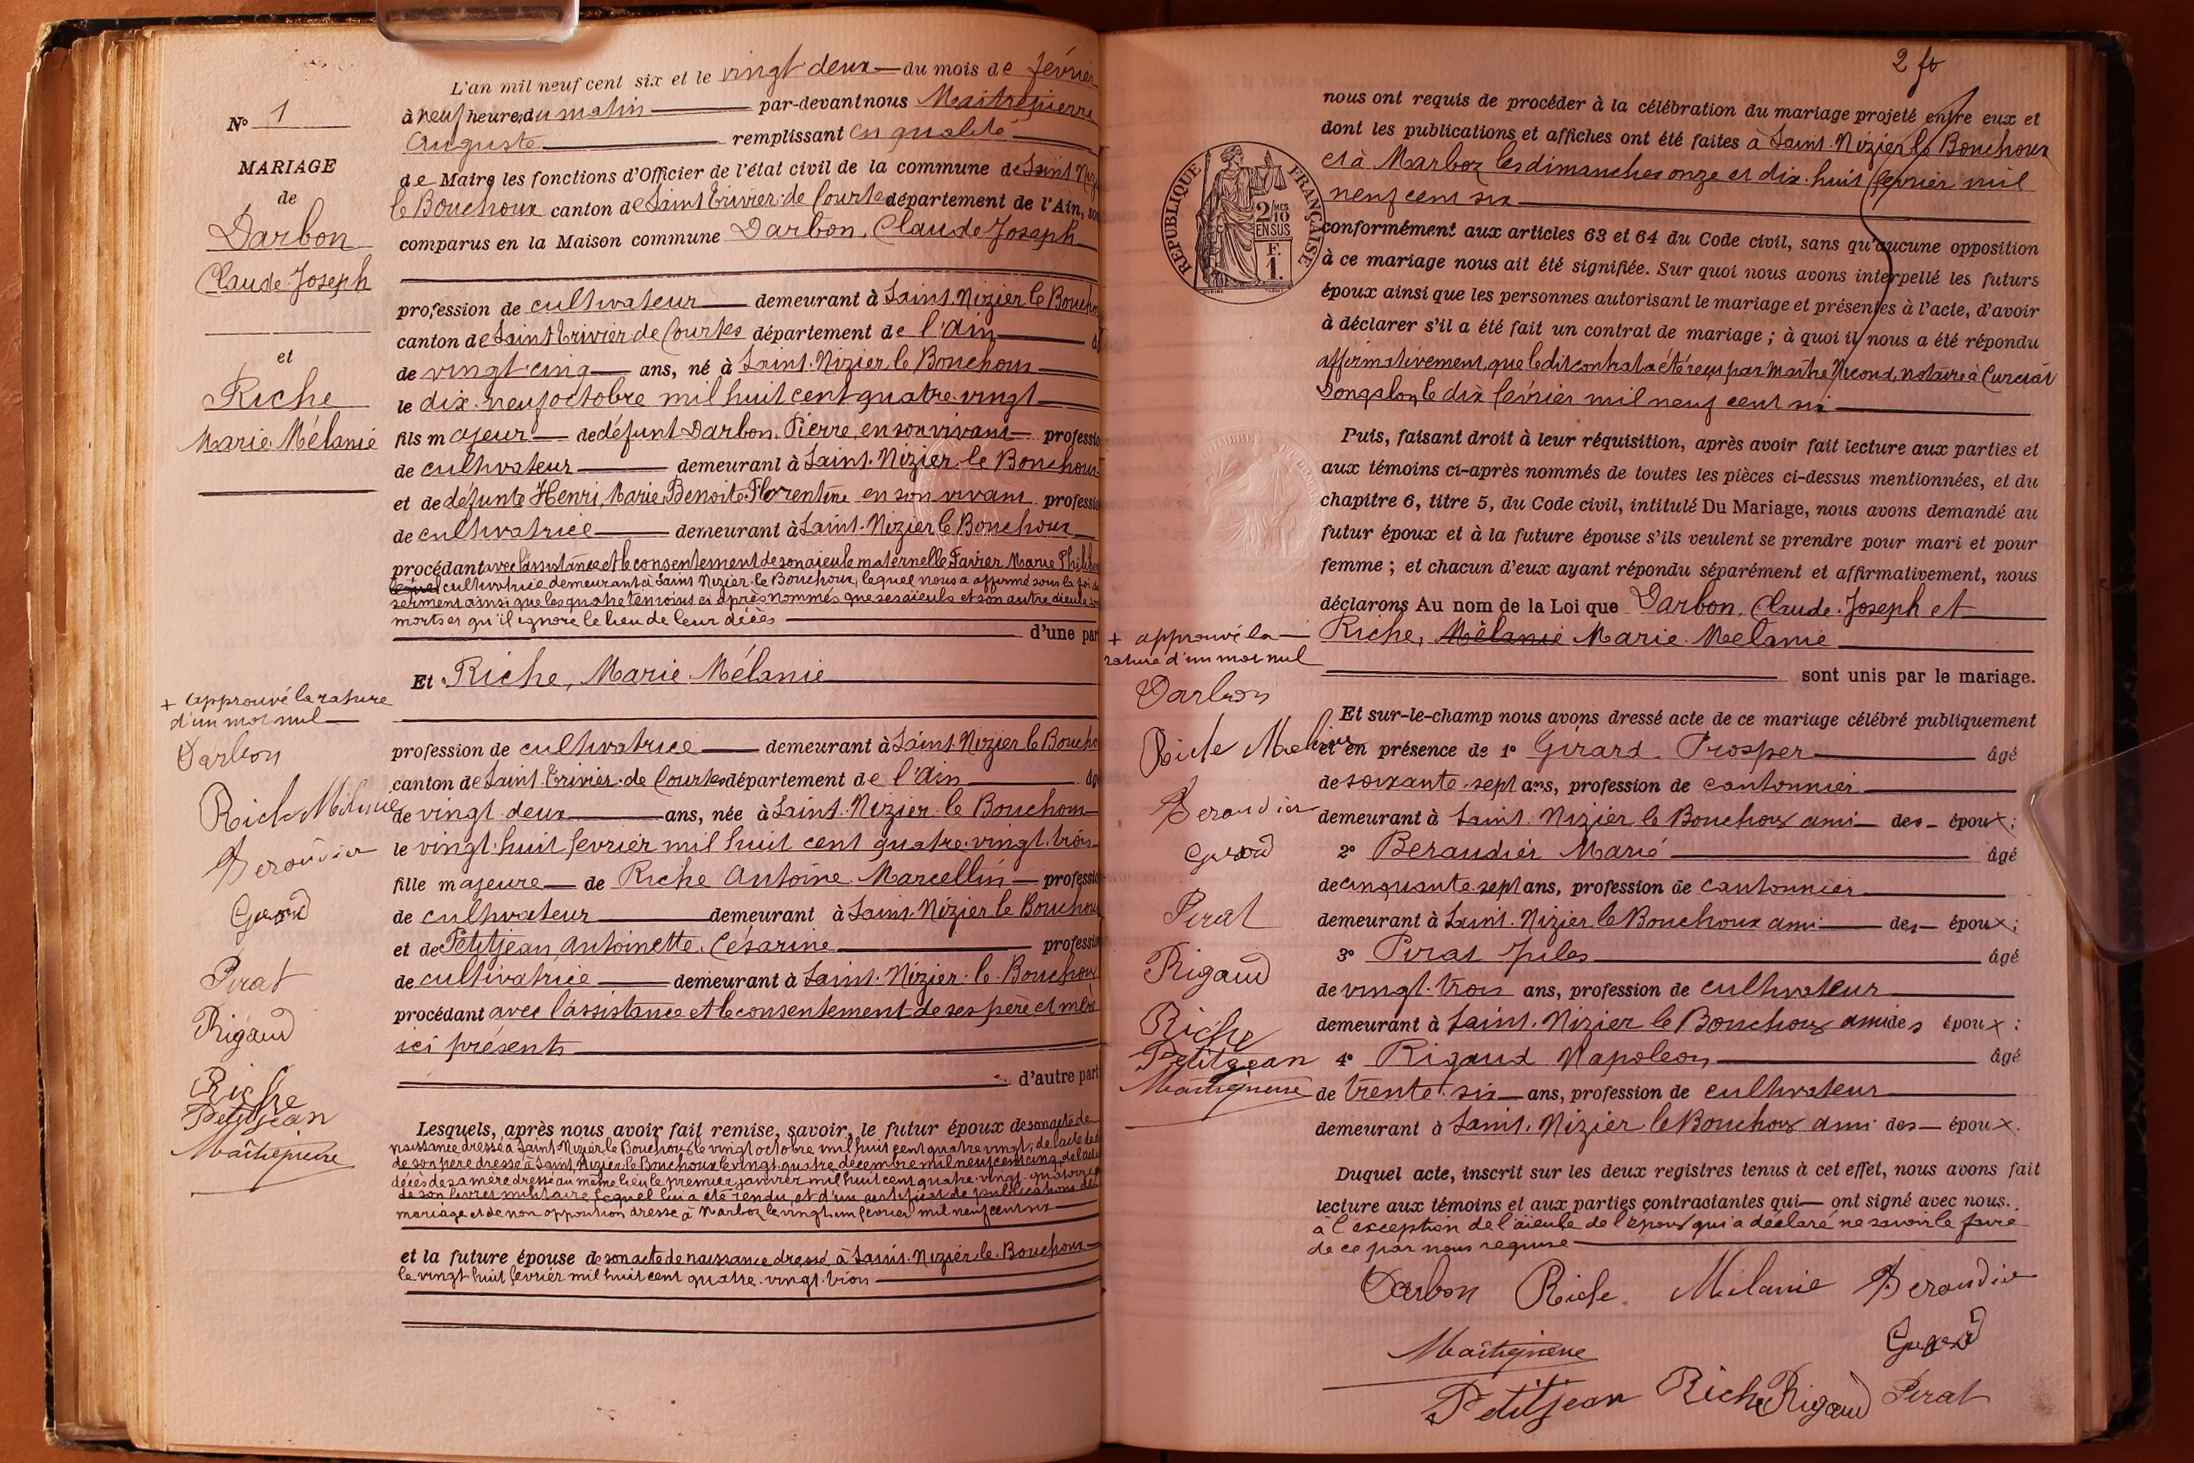 L'an mil neuf cent six et le vingt deux du mois de février
N° 1
à neuf heures du matin par-devant nous Maitrepierre
Auguste remplissant en qualité
MARIAGE
de Maire les fonctions d'Officier de l'état civil de la commune de Saint Nizier
de
le Bouchoux canton de Saint Trivier de Courtes département de l'Ain,
Darbon
comparus en la Maison commune Darbon, Claude Joseph
Claude Joseph
profession de cultivateur demeurant à Saint. Nizier le Bouchoux
canton de Saint Trivier de Courtes département de l'Ain
et
de vingt cinq ans, né à Saint. Nizier le Bouchoux
Riche
le dix neuf octobre mil huit cent quatre vingt
Marie Mélanie
fils majeur de défunt Darbon, Pierre, en son vivant profession
de cultivateur demeurant à Saint. Nizier le Bouchoux
et de défunte Henri, Marie Benoite Florentine en son vivant profession
de cultivatrice demeurant à Saint. Nizier le Bouchoux
procédant avec l'assistance et le consentement de son aieule maternelle Favier Marie
cultivatrice demeurant à Saint Nizier le Bouchoux, lequel nous a affirmé sous la foi du
serment ainsi que les quatre témoins ci après nommés que ses aieuls et son autre aieule sont
morts et qu'il ignore le lieu de leur décès
d'une part
Et Riche, Marie Mélanie
+ approuvé la rature
d'un mot nul
Darbon
profession de cultivatrice demeurant à Saint. Nizier le Bouchoux
canton de Saint Trivier de Courtes département de l'Ain
Riche Mélanie
de vingt deux ans, née à Saint. Nizier le Bouchoux
le vingt huit février mil huit cent quatre vingt trois
Beraudier
fille majeure de Riche Antoine Marcellin profession
Girard
de cultivateur demeurant à Saint. Nizier le Bouchoux
et de Petitjean, Antoinette Césarine profession
Pirat
de cultivatrice demeurant à Saint. Nizier le Bouchoux
procédant avec l'assistance et le consentement de ses père et mère
Rigaud
ici présents
d'autre part
Riche
Petitjean
Maitrepierre
Lesquels, après nous avoir fait remise, savoir, le futur époux de son acte de
naissance dressé à Saint Nizier le Bouchoux le vingt octobre mil huit cent quatre vingt; de l'acte de
de son père dressé à Saint Nizier le Bouchoux le vingt quatre décembre mil neuf cent cinq, de l'acte
décès de sa mère dressé au même lieu le premier janvier mil huit cent quatre vingt quatorze
de son livret militaire lequel lui a été rendu et d'un certificat de publications de
mariage et de non opposition dressé à Marboz le vingt un février mil neuf cent six
et la future épouse de son acte de naissance dressé à Saint. Nizier le Bouchoux
le vingt huit février mil huit cent quatre vingt trois
2 fo
nous ont requis de procéder à la célébration du mariage projeté entre eux et
dont les publications et affiches ont été faites à Saint. Nizier le Bouchoux
et à Marboz les dimanches onze et dix huit février mil
neuf cent six
RÉPUBLIQUE FRANÇAISE
2/10 MES
EN SUS
F.
1.
conformément aux articles 63 et 64 du Code civil, sans qu'aucune opposition
à ce mariage nous ait été signifiée. Sur quoi nous avons interpellé les futurs
époux ainsi que les personnes autorisant le mariage et présentes à l'acte, d'avoir
à déclarer s'il a été fait un contrat de mariage; à quoi il nous a été répondu
affirmativement, que ledit contrat a été reçu par Maître notaire à Curciat
Dongalon, le dix février mil neuf cent six
Puis, faisant droit à leur réquisition, après avoir fait lecture aux parties et
aux témoins ci-après nommés de toutes les pièces ci-dessus mentionnées, et du
chapitre 6, titre 5, du Code civil, intitulé Du Mariage, nous avons demandé au
futur époux et à la future épouse s'ils veulent se prendre pour mari et pour
femme; et chacun d'eux ayant répondu séparément et affirmativement, nous
déclarons Au nom de la Loi que Darbon, Claude. Joseph et
Riche, Mélanie Marie Mélanie
sont unis par le mariage.
+ approuvé la
rature d'un mot nul
Darbon
Et sur-le-champ nous avons dressé acte de ce mariage célébré publiquement
Riche Mélanie
et en présence de 1° Girard Prosper âgé
de soixante sept ans, profession de cantonnier
Beraudier
demeurant à Saint. Nizier le Bouchoux ami des époux;
Girard
2° Beraudier Marie âgé
de cinquante sept ans, profession de cantonnier
Pirat
demeurant à Saint. Nizier le Bouchoux ami des époux;
Rigaud
3° Pirat Jules âgé
de vingt trois ans, profession de cultivateur
Riche
demeurant à Saint. Nizier le Bouchoux ami des époux;
Petitjean
4° Rigaud Napoleon âgé
Maitrepierre
de trente six ans, profession de cultivateur
demeurant à Saint. Nizier le Bouchoux ami des époux.
Duquel acte, inscrit sur les deux registres tenus à cet effet, nous avons fait
lecture aux témoins et aux parties contractantes qui ont signé avec nous.
à l'exception de l'aieule de l'époux qui a déclaré ne savoir le faire
de ce par nous requise
Darbon Riche Mélanie Beraudier
Maitrepierre Girard
Petitjean Riche Rigaud Pirat